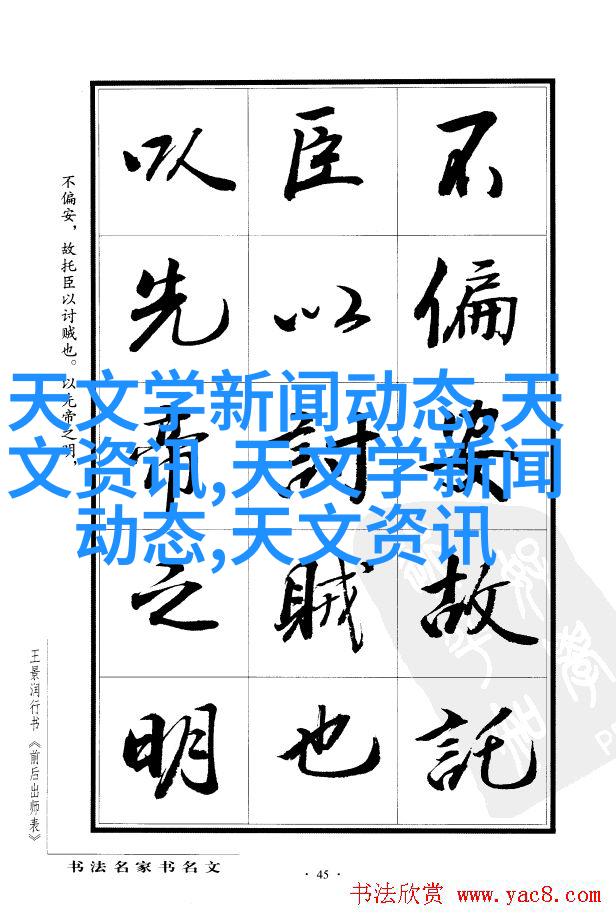 不偏安故託
臣以討賊也
以先帝之明
不偏安，故托臣以讨贼也。以先帝之明，
天文学新闻动态,天
文资讯,天文学新闻
动态,天文资讯
王景润行书《前后出师表》
书法名家书名文
· 45 ·
书法欣赏 www.yac8.com